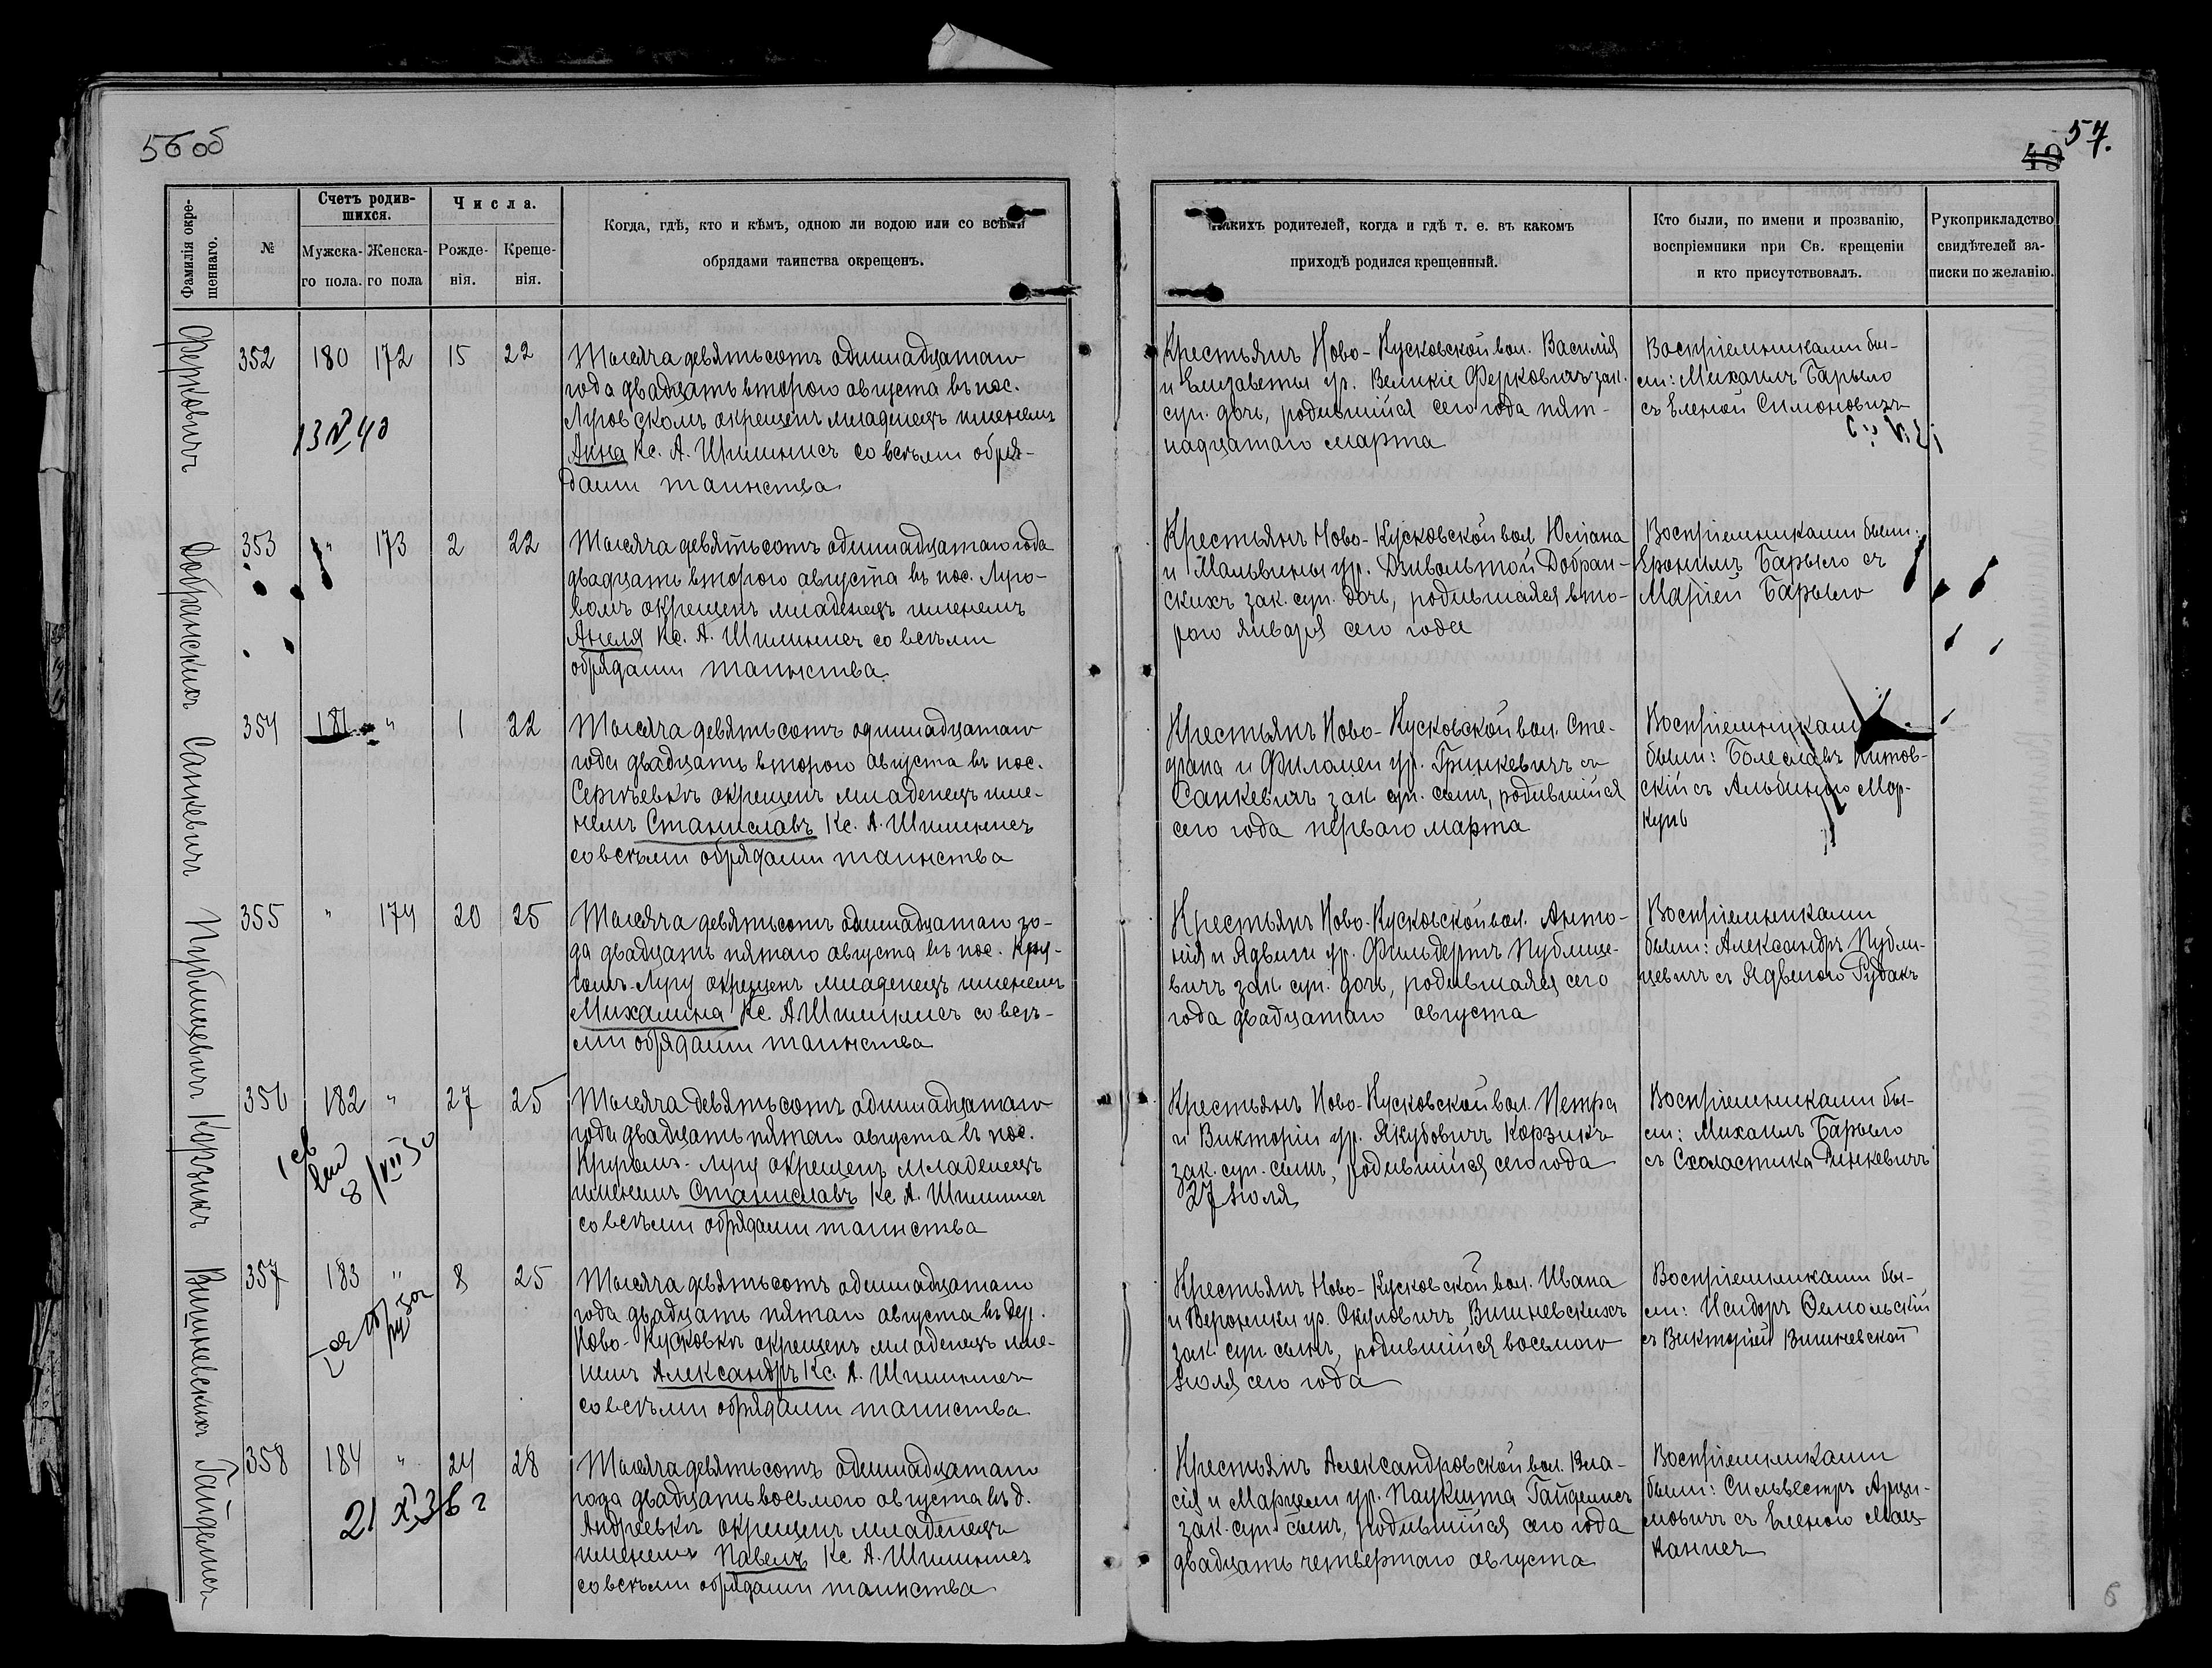 56 об
57.
49
Фамилія окре-
щеннаго.
№
Счетъ родив-
шихся.
Мужска-
го пола.
Женска-
го пола
Числа.
Рожде-
нія.
Креще-
нія.
Когда, гдѣ, кто и кѣмъ, одною ли водою или со всѣми
обрядами таинства окрещенъ.
Какихъ родителей, когда и гдѣ т. е. въ какомъ
приходѣ родился крещенный.
Кто были, по имени и прозванію,
воспріемники при Св. крещеніи
и кто присутствовалъ.
Рукоприкладство
свидѣтелей за-
писки по желанію.
Ферковичъ
352 180 172 15 22
Тысяча девятьсотъ одиннадцатаго
года двадцать второго августа въ пос.
Луговскомъ окрещенъ младенецъ именемъ
Анна Кс. А. Шимкунасъ со всѣми обря-
дами таинства
Крестьянъ Ново-Кусковской вол. Василія
и Елизаветы ур. Великіе Ферковичъ зак.
суп. дочь, родившійся сего года пят-
надцатаго марта
Воспріемниками бы-
ли: Михаилъ Барыло
съ Еленой Симоновичъ
Добранскихъ
353 " 173 2 22
Тысяча девятьсотъ одиннадцатаго года
двадцать второго августа въ пос. Луго-
вомъ окрещенъ младенецъ именемъ
Анеля Кс. А. со всѣми
обрядами таинства
Крестьянъ Ново-Кусковской вол. Юліана
и Мальвины ур. Добран-
скихъ зак. суп. дочь, родившаяся вто-
рого января сего года
Воспріемниками были:
Еронимъ Барыло съ
Маріей Барыло
Санкевичъ
354 181 " 1 22
Тысяча девятьсотъ одиннадцатаго
года двадцать второго августа въ пос.
Сергѣевкѣ окрещенъ младенецъ име-
немъ Станиславъ Кс. А.
со всѣми обрядами таинства
Крестьянъ Ново-Кусковской вол. Сте-
фана и Филомеи ур. Гринкевичъ
Санкевичъ зак. суп. сынъ, родившійся
сего года перваго марта
Воспріемниками
были: Болеславъ
скій съ Альбиною Мор-
кунь
Публицевичъ
355 " 174 20 25
Тысяча девятьсотъ одиннадцатаго го-
да двадцать пятаго августа въ пос. Кру-
гомъ-Лугу окрещенъ младенецъ именемъ
Михалина Кс. А. со всѣ-
ми обрядами таинства
Крестьянъ Ново-Кусковской вол. Анто-
нія и Ядвиги ур. Публице-
вичъ зак. суп. дочь, родившаяся сего
года двадцатаго августа
Воспріемниками
были: Александръ Публи-
цевичъ съ Ядвигою Рудакъ
Корзикъ
356 182 " 27 25
Тысяча девятьсотъ одиннадцатаго
года двадцать пятаго августа въ пос.
Кругомъ-Лугу окрещенъ младенецъ
именемъ Станиславъ Кс. А.
со всѣми обрядами таинства
Крестьянъ Ново-Кусковской вол. Петра
и Викторіи ур. Якубовичъ Корзикъ
зак. суп. сынъ, родившійся сего года
27 Іюля
Воспріемниками бы-
ли: Михаилъ Барыло
съ Схоластика
8/VII 30
Вишневскихъ
357 183 " 8 25
Тысяча девятьсотъ одиннадцатаго
года двадцать пятаго августа въ дер.
Ново-Кусковкѣ окрещенъ младенецъ име-
немъ Александръ Кс. А.
со всѣми обрядами таинства
Крестьянъ Ново-Кусковской вол. Ивана
и Вероники ур. Окуловичъ Вишневскихъ
зак. суп. сынъ, родившійся восьмого
Іюля сего года
Воспріемниками бы-
ли: Исидоръ
съ Викторіей Вишневской
Гайделисъ
358 184 " 24 28
21 XI 36 г
Тысяча девятьсотъ одиннадцатаго
года двадцать восьмого августа въ д.
Андреевкѣ окрещенъ младенецъ
именемъ Павелъ Кс. А.
со всѣми обрядами таинства
Крестьянъ Александровской вол. Вла-
сія и Марцели ур. Паукшта Гайделисъ
зак. суп. сынъ, родившійся сего года
двадцать четвертаго августа
Воспріемниками
были: Сильвестръ Арци-
мовичъ съ Еленою Мац-
6